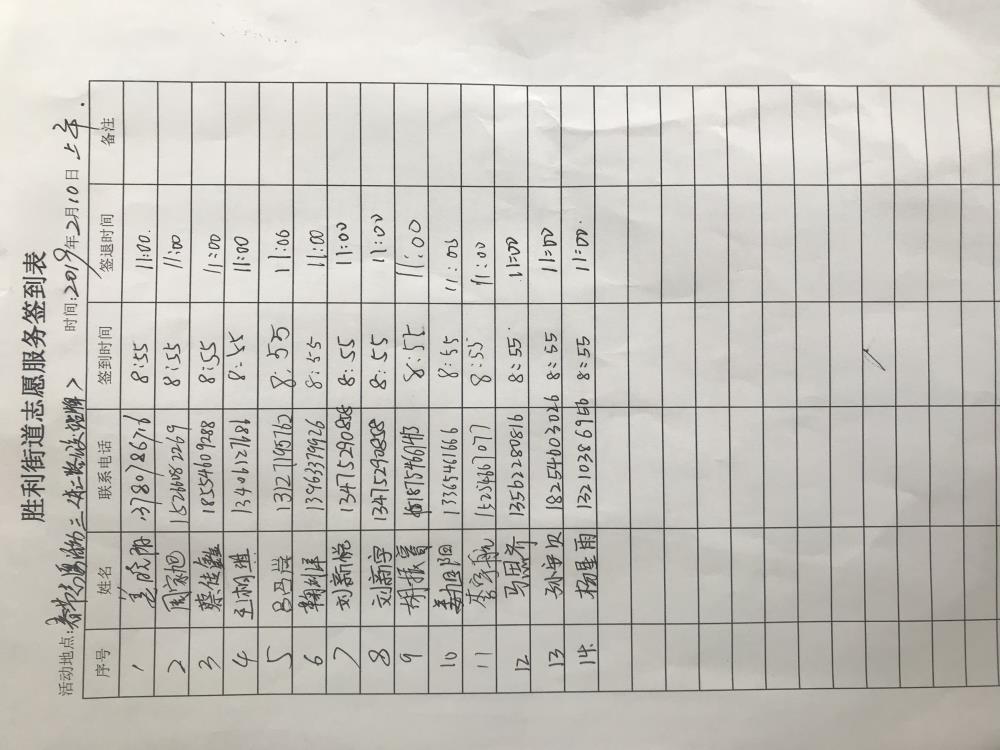 胜利街道志愿服务签到表
活动地点: 时间:2019年2月10日上午.
序号 姓名 联系电话 签到时间 签退时间 备注
1 13780786716 8:55 11:00.
2 周宗旭 15266082269 8:55 11:00
3 蔡佳鑫 18554609288 8:55 11:00
4 王湘淇 13406127686 8:55 11:00
5 吕品莹 13127195762 8:55 11:00
6 鞠刘洋 13963379926 8:55 11:00
7 刘新悦 13475290858 8:55 11:00
8 刘新宇 13475290858 8:55 11:00
9 胡振富 18754661413 8:55 11:00
10 姜旭阳 13365461666 8:55 11:00
11 李宇航 15254667077 8:55 11:00
12 马思齐 13562280816 8:55 11:00
13 孙安贝 18254603026 8:55 11:00
14. 杨星雨 13210386956 8:55 11:00.